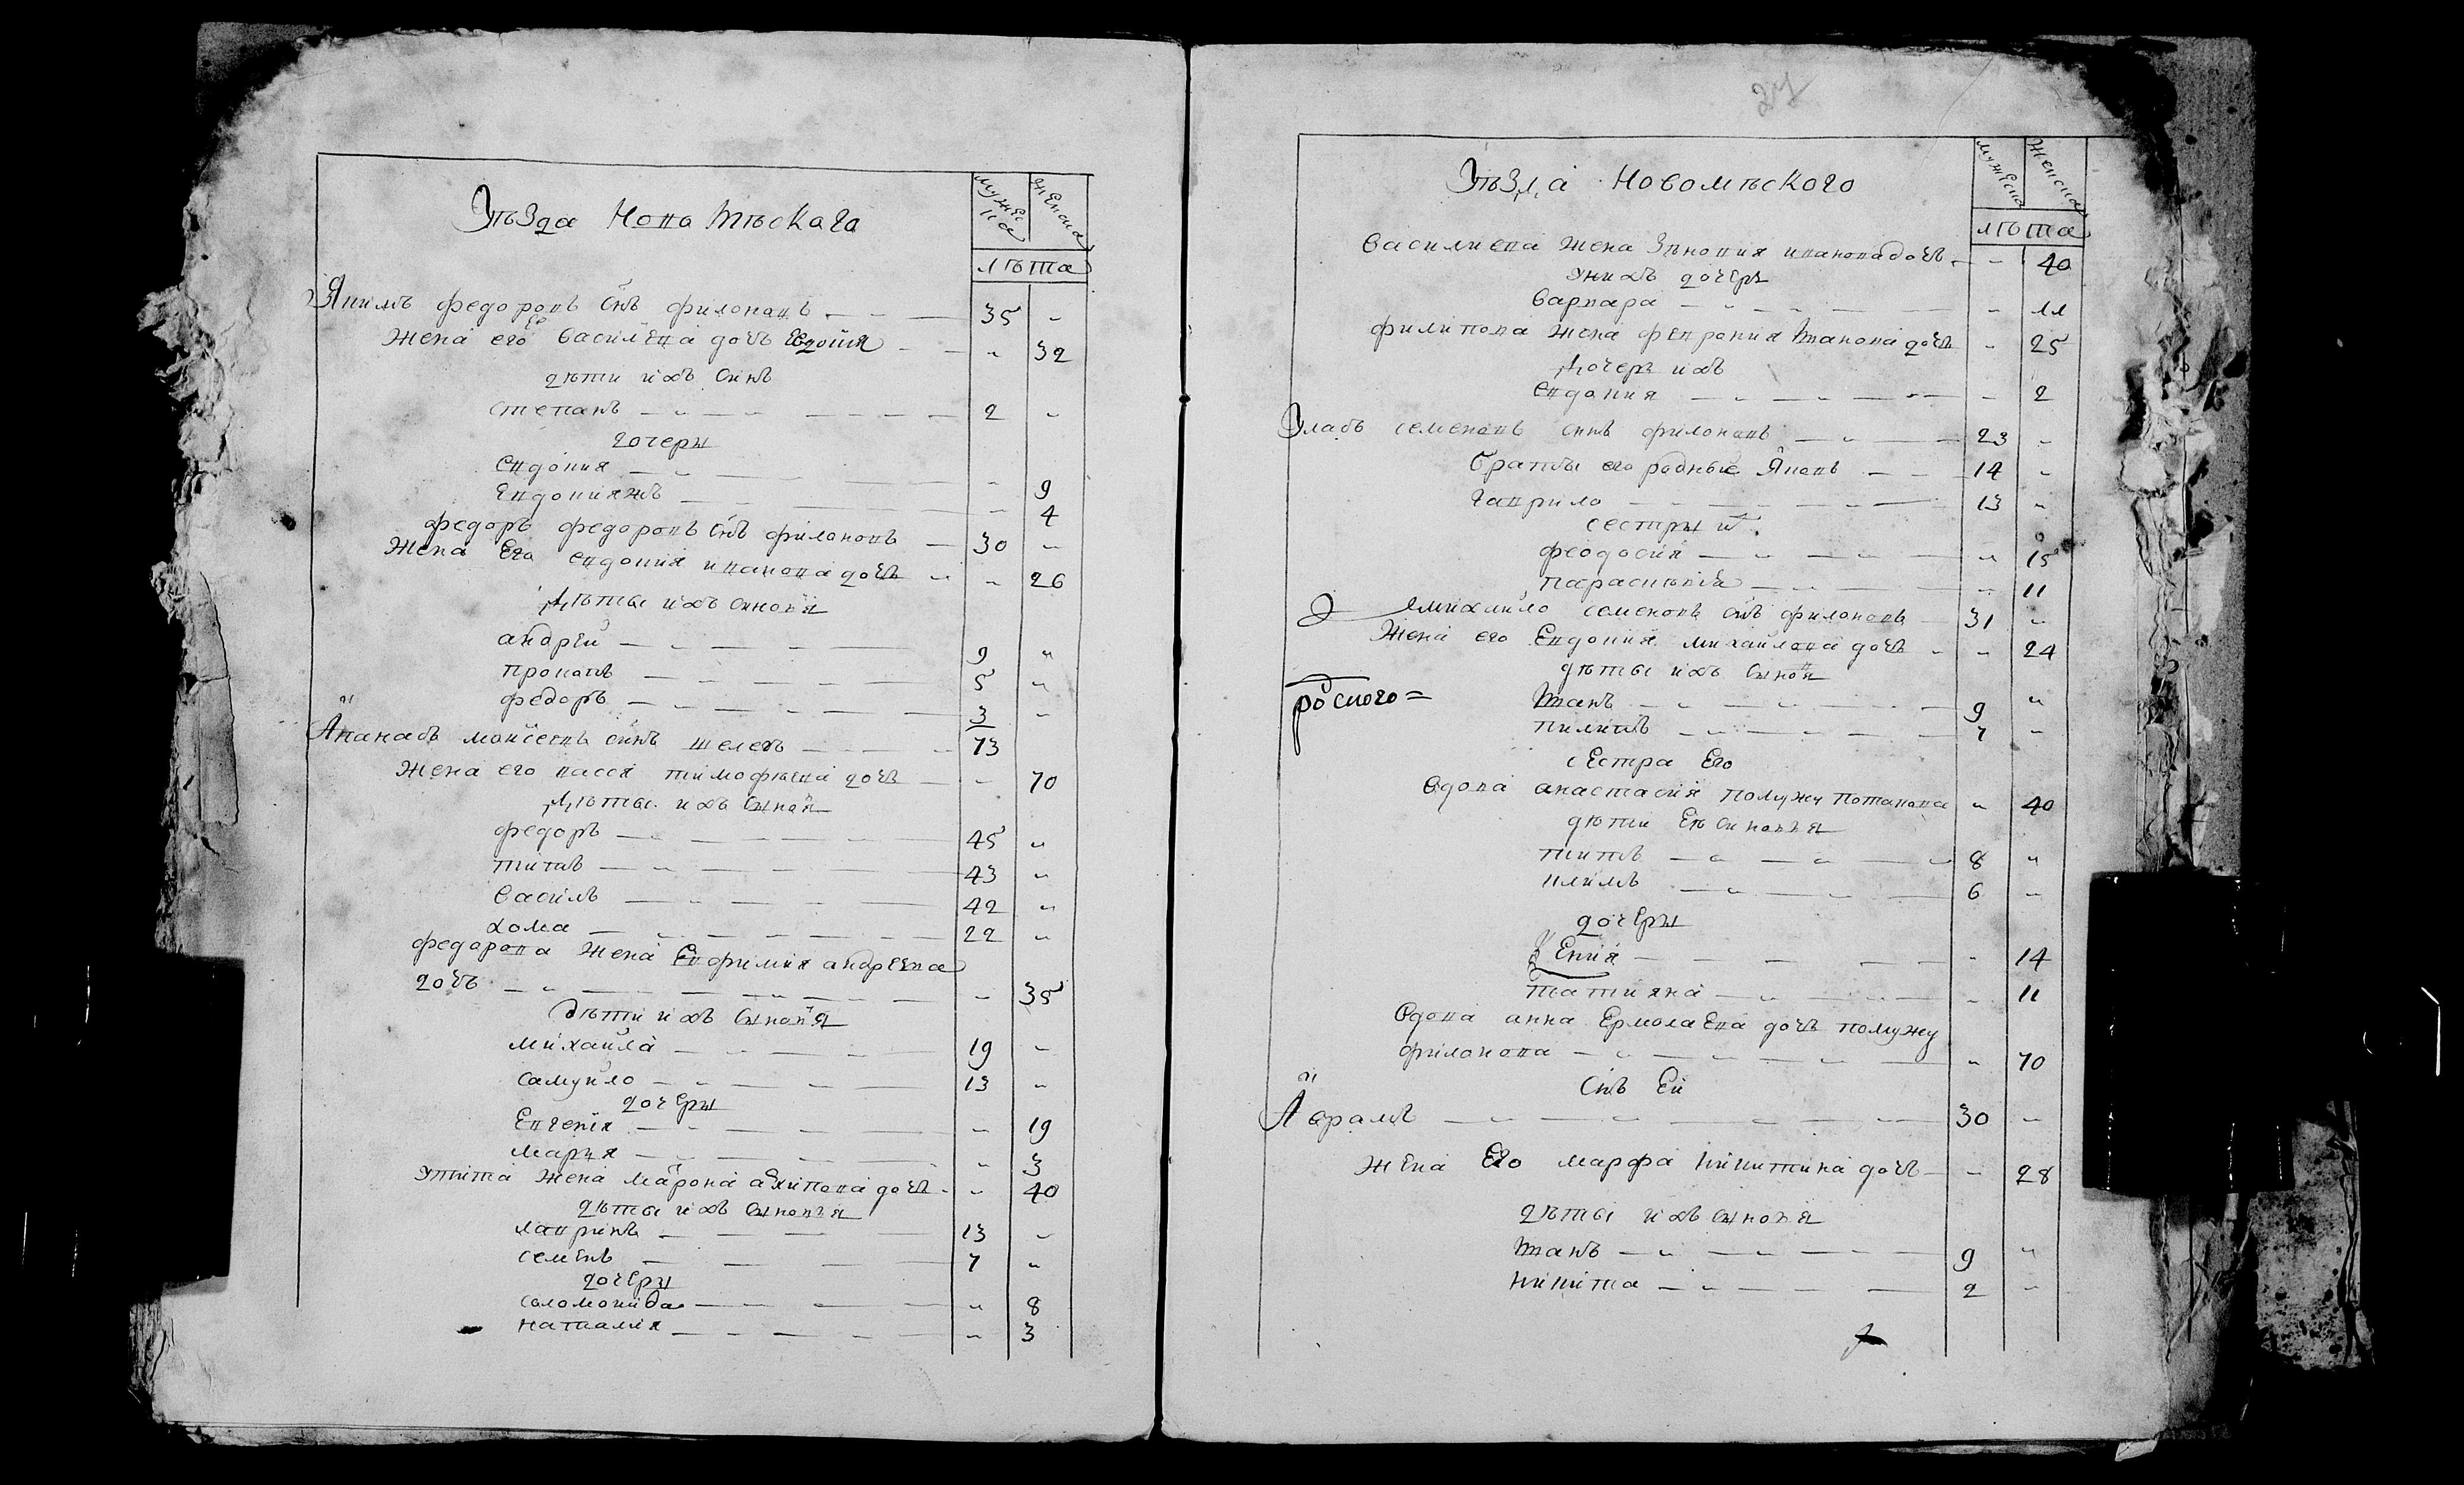 Уѣзда Нова мѣскаго
мужеска
женска
лѣта
Якимъ федоровъ снъ филоновъ 35 "
жена его василева дочъ Евдокия " 32
дѣти ихъ синъ
степанъ 2 "
дочеры
Евдокия " 9
Евдокияжъ " 4
федоръ федоровъ снъ филоновъ 30 "
жена Его евдокия иванова дочъ " 26
Дѣты ихъ синовя
андрей 9 "
прокопъ 5 "
федоръ 3 "
Апанасъ мойсеевъ синъ 73
жена его васся тимофѣева дочъ " 70
Дѣты ихъ сыновя
федоръ 45 "
титъ 43 "
василъ 42 "
хома 22 "
федорова жена Евфимия андреева
дочъ " 35
дѣти ихъ сыновя
михайла 19 "
самуйло 13 "
дочеры
Евгения " 19
маря " 3
утита жена архипова дочъ " 40
дѣты ихъ сыновя
лавринъ 13 "
семенъ 7 "
дочеры
соломонида " 8
наталия " 3
27
Уѣзда Новомѣского
мужеска
женска
лѣта
василиева жена Зѣновия иванова дочъ " 40
унихъ дочеръ
варвара " 11
филипова жена феврония иванова дочъ " 25
Дочеръ ихъ
евдокия " 2
Уласъ семеновъ синъ филоновъ 23 "
браты его родные Яковъ 14 "
гаврило 13 "
сестры их
феодосия " 15
параскѣвия " 11
михайло семеновъ снъ филоновъ 31 "
жена его Евдокия михайлова дочъ " 24
дѣты ихъ сынов
роского =
иванъ 9 "
пилипъ 7 "
сестра Его
вдова анастасия помужу потапова " 40
дѣти Еѣ синовѣя
титъ 8 "
климъ 6 "
дочеры
" 14
татияна " 11
вдова анна Ермолаева дочъ помужу
филонова " 70
снъ Ей
Аврамъ 30 "
жена Его марфа никитина дочъ " 28
дѣты ихъ сыновя
иванъ 9 "
никита 2 "